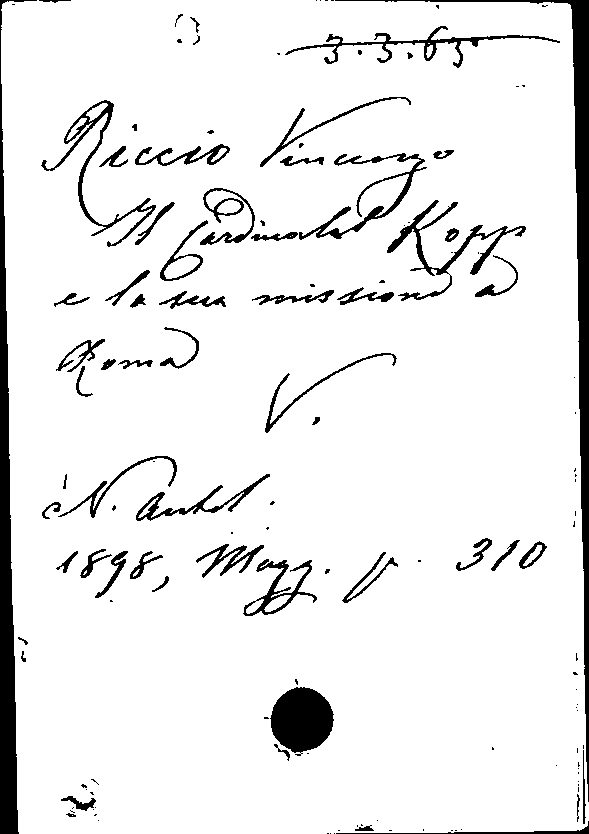 3.3.63
Riccio Vincenzo
Il Cardinale Kopp
e la sua missione a
Roma
V.
N. Antol.
1898, Magg. p. 310